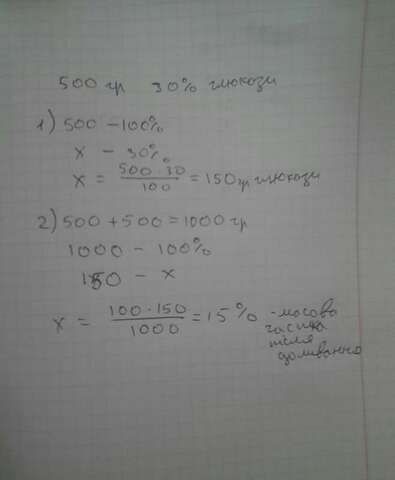 500 гр 30% глюкози
1) 500 – 100%
x – 30%
x = 500 · 30 / 100 = 150 гр глюкози
2) 500 + 500 = 1000 гр
1000 – 100%
150 – x
x = 100 · 150 / 1000 = 15% – масова
частка
після
доливання